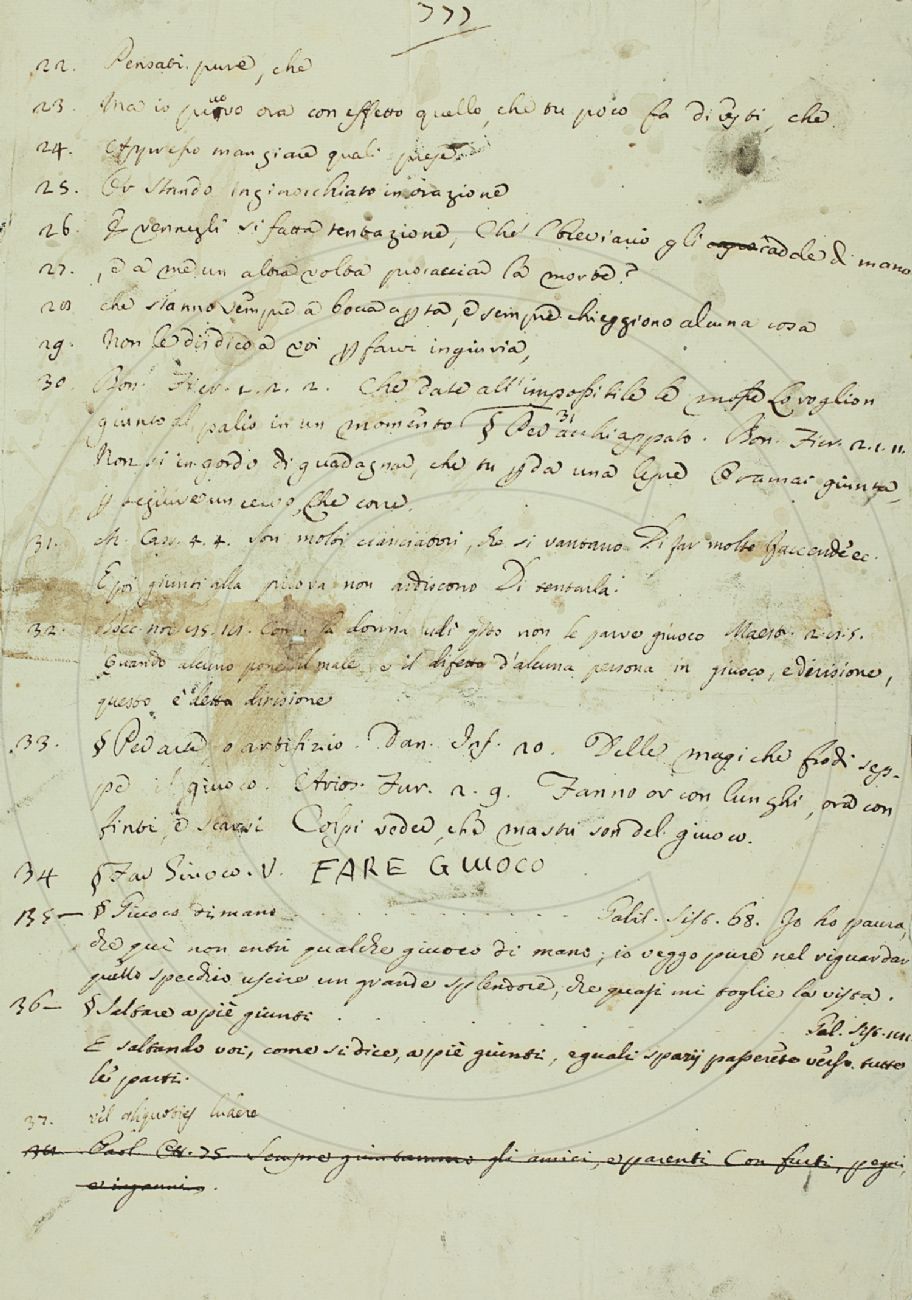 777
22. Pensati pure, che
23. Ma io pruovo ora con effetto quello, che tu poco fa dicesti, che
24. Appresso mangiare quali
25. Et stando inginocchiato in orazione
26. E vennegli si fatta tentazione, che 'l breviario gli cadde di mano
27. , e a me un altra volta procacciar la morte?
28. che stanno sempre a bocca apta, e sempre chieggiono alcuna cosa
29. Non le disdico a voi p farvi ingiuria,
30. Bon. Fier. 1. 2. 2. Che date all'impossibile le mosse Lo voglion
giunto al palio in un momento § Per acchiappato. Bon. Fier. 2. 1. 11.
Non si ingordo di guadagnar, che tu pda una lepre Oramai giunta,
p seguire un cervo, Che corre.
31. M. Cas. 4. 4. Son molti cianciatori, che si vantano Di far molte faccende ec.
E poi giunti alla pruova non ardiscono Di tentarla.
32. Bocc. nov. la donna udi qsto non le parve giuoco Maestr. 2. 15.
Quando alcuno pone il male, o il difetto d'alcuna persona in giuoco, e derisione,
questo è detta dirisione
33. § Per arte, o artifizio. Dan. Inf. 20. Delle magiche frodi sep-
pe il giuoco. Arios. Fur. 2. 9. Fanno or con lunghi, ora con
finti, e scarsi Colpi veder, che mastri son del giuoco.
34 § Far Giuoco. V. FARE GIUOCO
135 — § Giuoco di mano . . . . . . . . . . Galil. Sist. 68. Io ho paura,
che qui non entri qualche giuoco di mano; io veggo pure nel riguardar
quello specchio uscire un grande splendore, che quasi mi toglie la vista.
36 — § Saltare a piè giunti . . . . . . . Gal. Sist.
E saltando voi, come si dice, a piè giunti, eguali spazij passereste verso tutte
le parti.
37. vel aliquoties ludere
Paol. Sempre gli amici, e parenti Con furti, pegni,
e inganni.